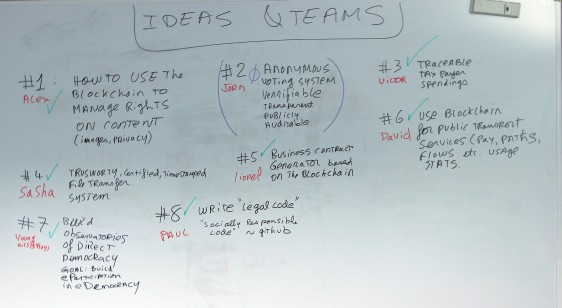 IDEAS & TEAMS
#1: HOW TO USE THE
Alex Blockchain TO
MANAGE RIGHTS
ON CONTENT
(images, PRIVACY)
#2 ANONYMOUS
JORN VOTING SYSTEM
Verifiable
Transparent
Publicly
Auditable
#3 TRACEABLE
VICTOR TAX PAYER
SPENDINGS
#4 TRUSWORTY, Certified, Timestamped
SaSha File Transfer
SYSTEM
#5 Business contract
Lionel Generator based
ON THE Blockchain
#6 USE Blockchain
David for PUBLIC TRANSPORT
Services (Pay, PATHS,
Flows etc. USAGE
STATS.
#7 Build
OBSERVATORIES
of DIRECT
DEMOCRACY
GOAL: Build
eParticipation
in eDemocracy
#8 WRITE "Legal code"
PAUL "Socially Responsible
code" ~ github